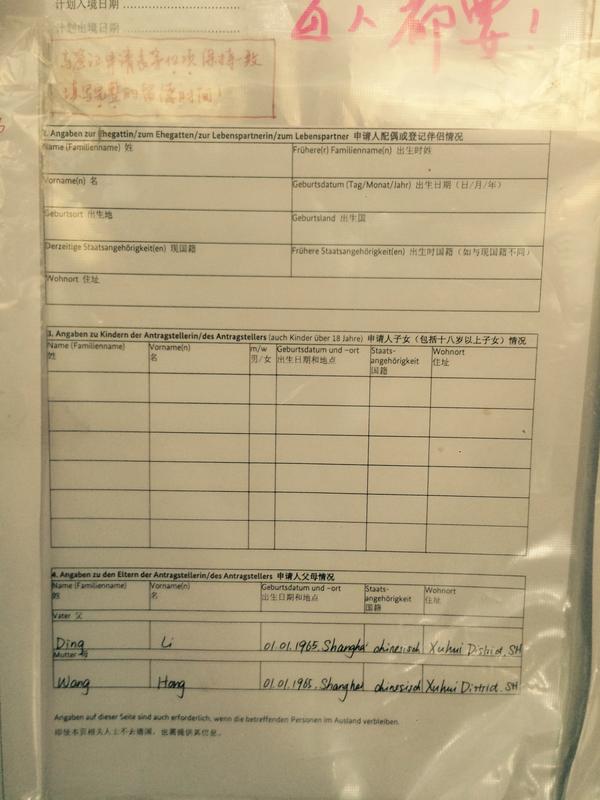 计划入境日期
计划出境日期
人都要!
申请表
保持一致
填写完整的留德时间!
2. Angaben zur Ehegattin/zum Ehegatten/zur Lebenspartnerin/zum Lebenspartner 申请人配偶或登记伴侣情况
Name (Familienname) 姓 Frühere(r) Familienname(n) 出生时姓
Vorname(n) 名 Geburtsdatum (Tag/Monat/Jahr) 出生日期（日/月/年）
Geburtsort 出生地 Geburtsland 出生国
Derzeitige Staatsangehörigkeit(en) 现国籍 Frühere Staatsangehörigkeit(en) 出生时国籍（如与现国籍不同）
Wohnort 住址
3. Angaben zu Kindern der Antragstellerin/des Antragstellers (auch Kinder über 18 Jahre) 申请人子女（包括十八岁以上子女）情况
Name (Familienname) Vorname(n) m/w Geburtsdatum und –ort Staats- Wohnort
姓 名 男/女 出生日期和地点 angehörigkeit 住址
国籍
4. Angaben zu den Eltern der Antragstellerin/des Antragstellers 申请人父母情况
Name (Familienname) Vorname(n) Geburtsdatum und –ort Staats- Wohnort
姓 名 出生日期和地点 angehörigkeit 住址
国籍
Vater 父
Ding Li 01.01.1965. Shanghai chinesisch Xuhui District. SH
Mutter 母
Wang Hong 01.01.1965. Shanghai chinesisch Xuhui District. SH
Angaben auf dieser Seite sind auch erforderlich, wenn die betreffenden Personen im Ausland verbleiben.
即使本页相关人士不去德国，也需提供其信息。